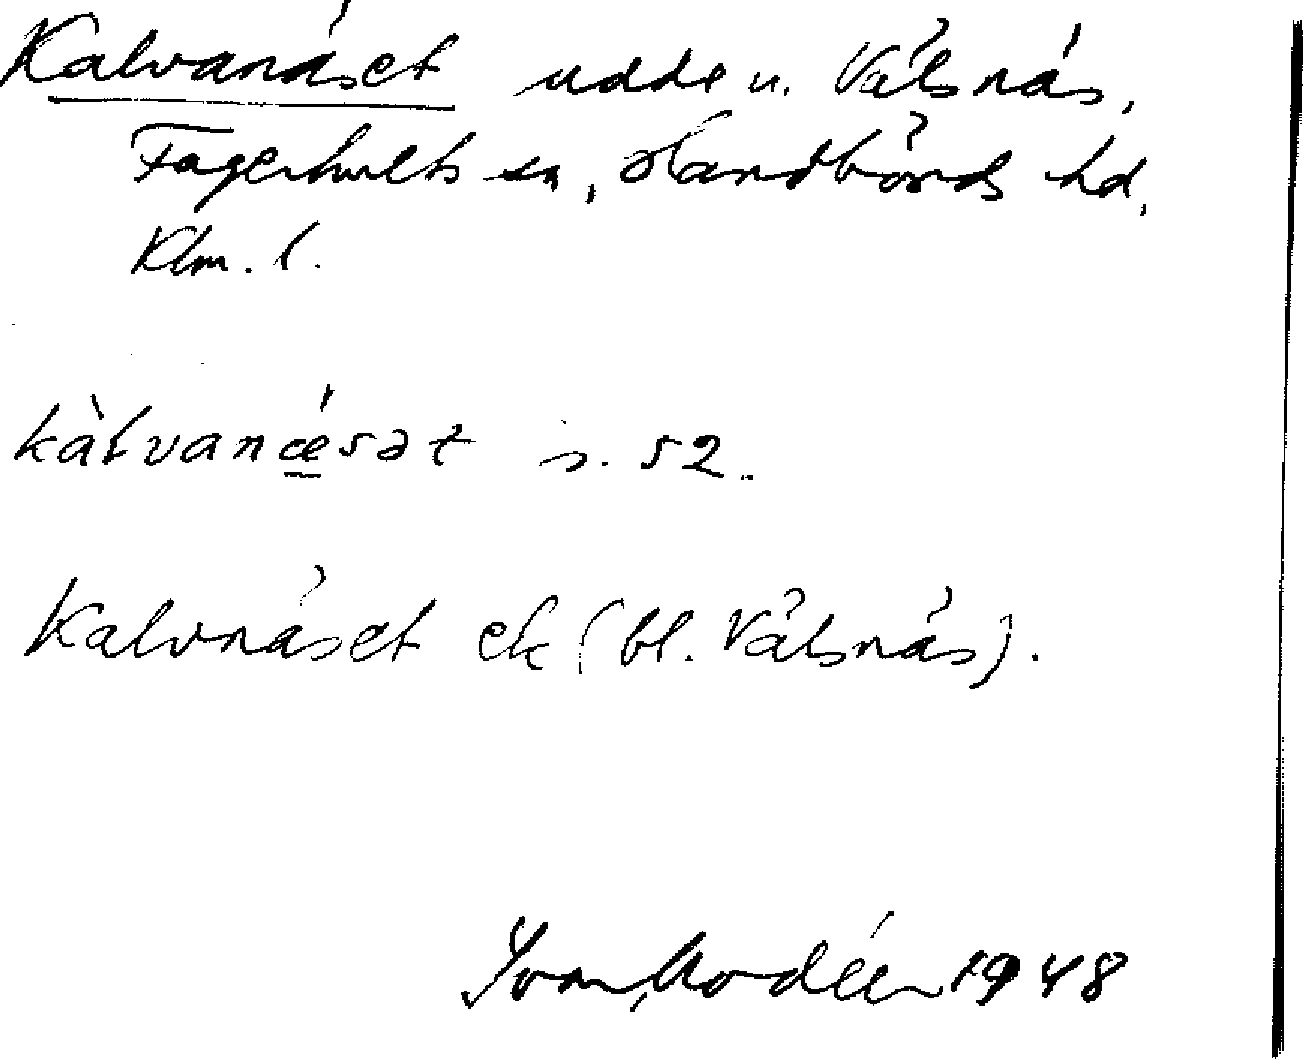 Kalvanäset udde u. Välsnäs,
Fagerhults sn, Handbörds hd,
Klm. l.
kàlvanǽsət s. 52.
Kalvnäset ek (bl. Välsnäs).
Ivar Modéer 1948